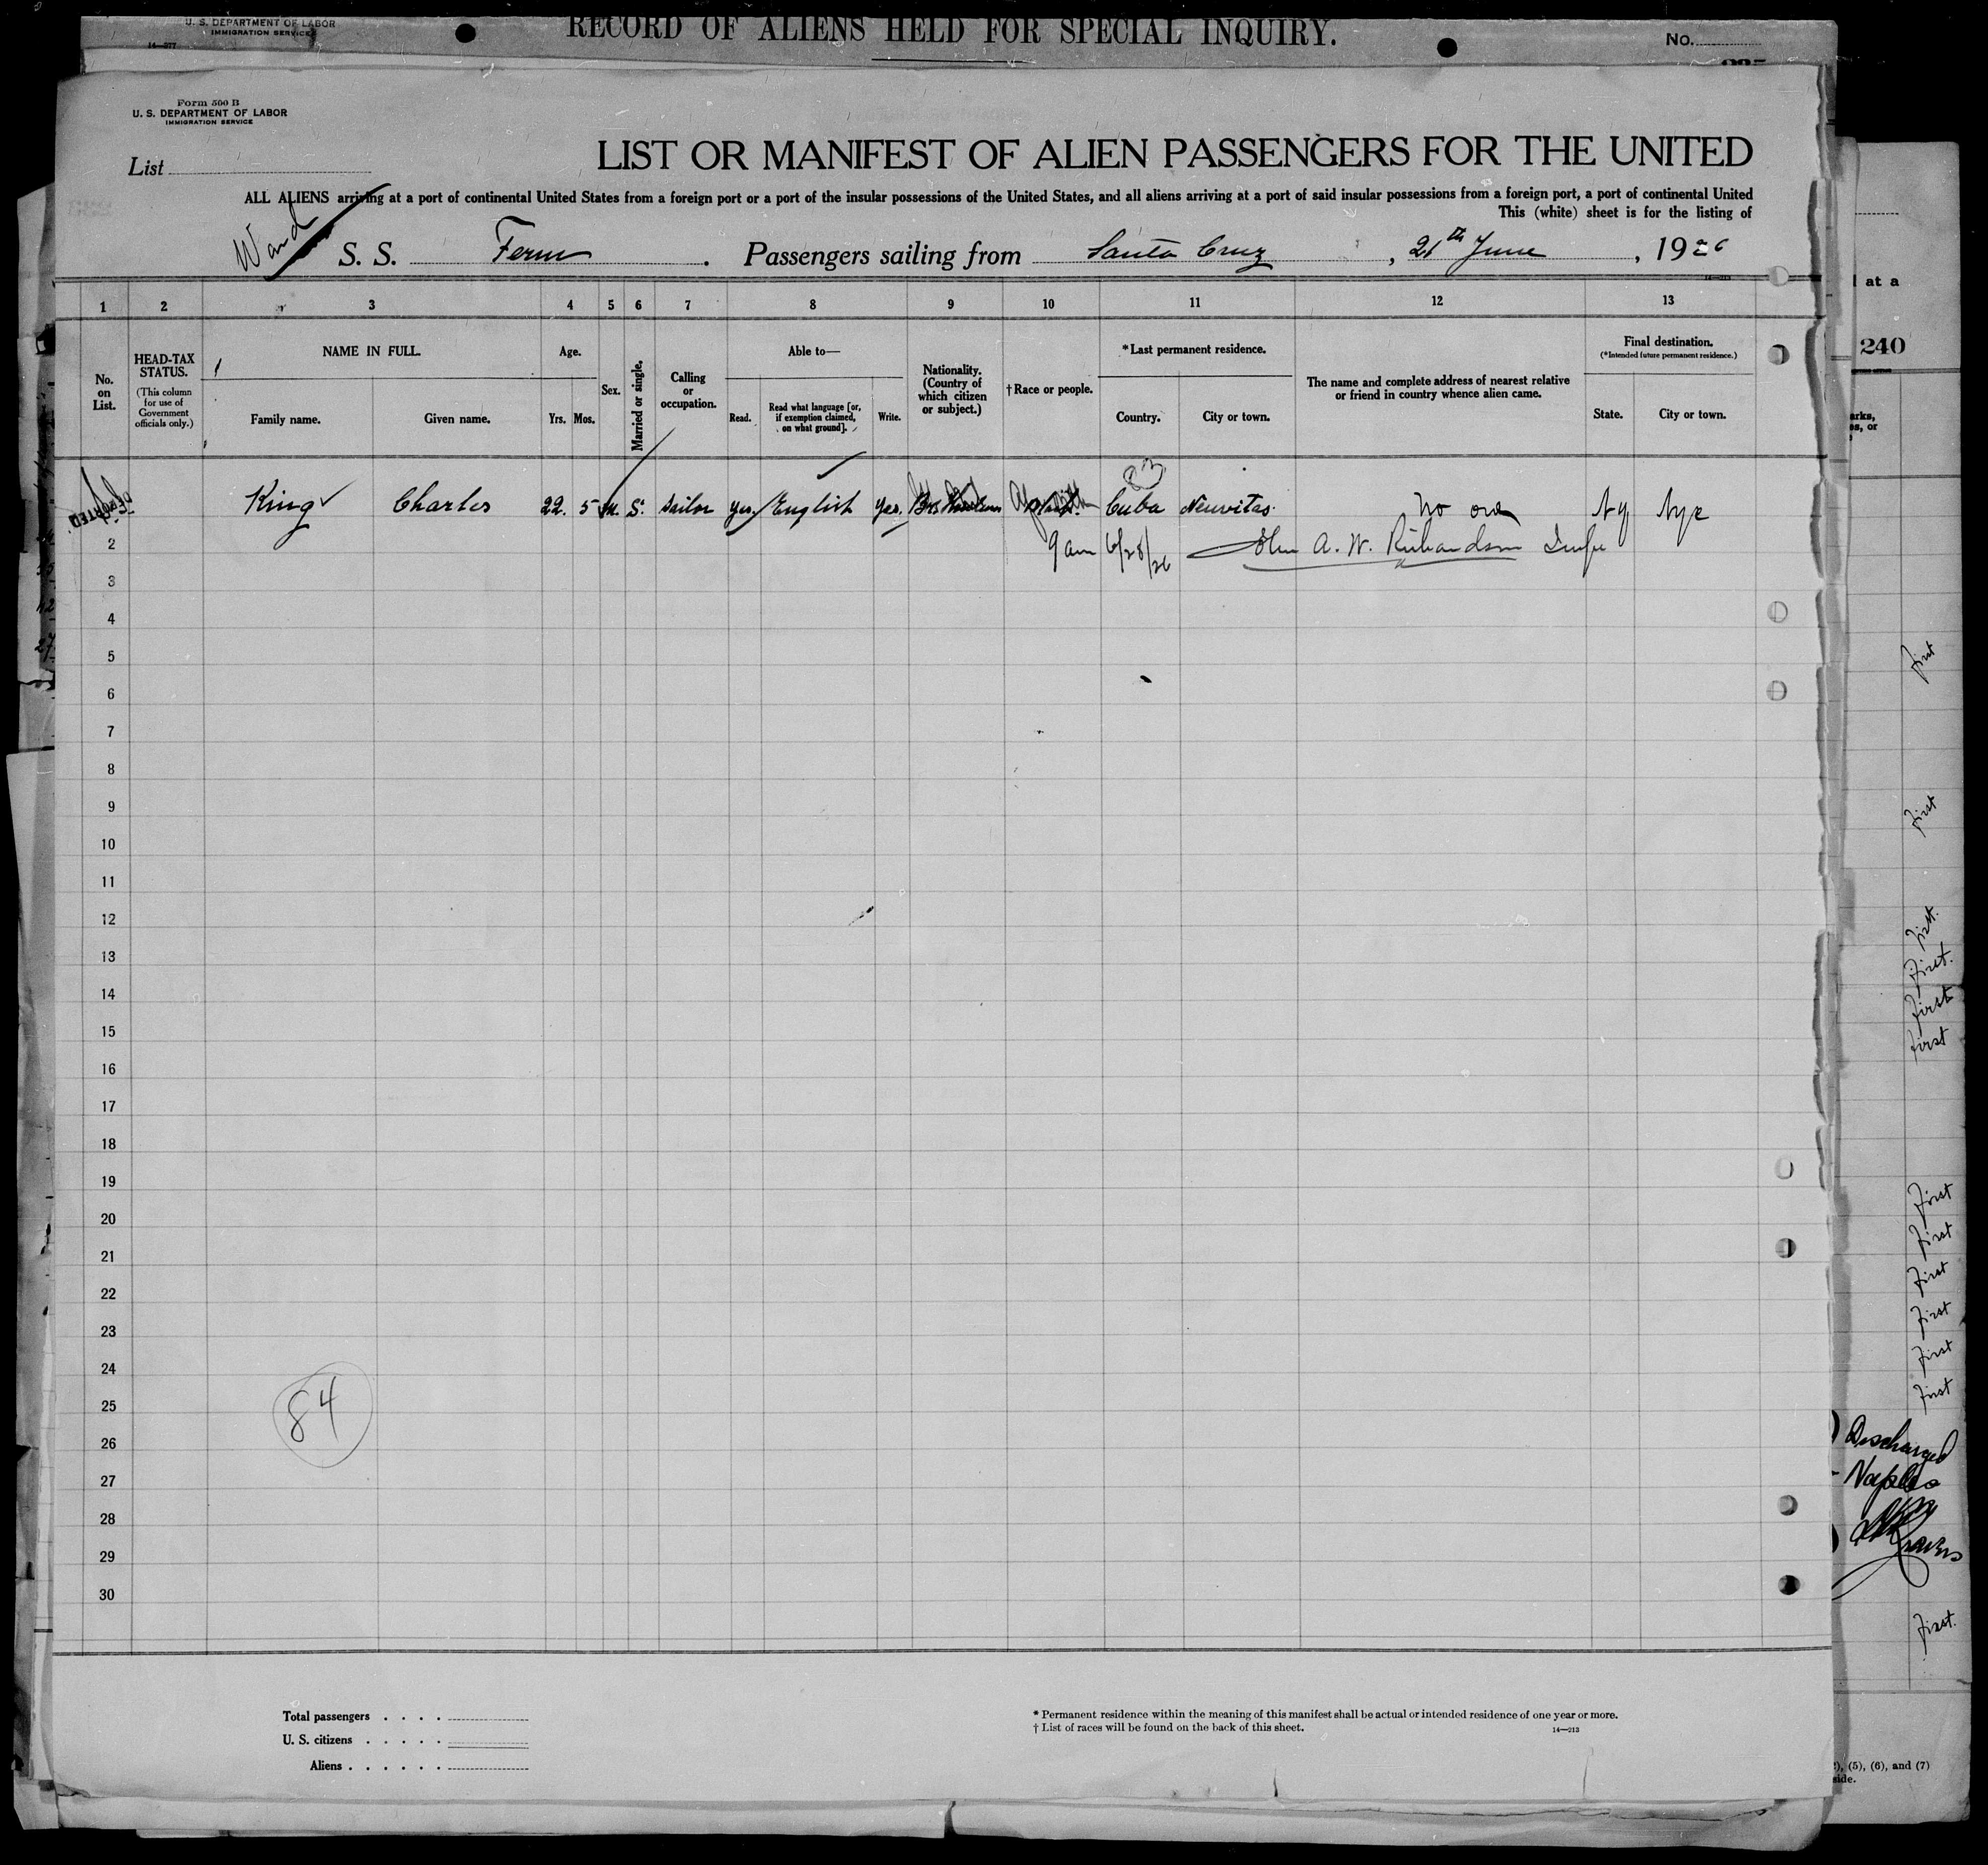 U. S. DEPARTMENT OF LABOR
IMMIGRATION SERVICE
14—277
RECORD OF ALIENS HELD FOR SPECIAL INQUIRY.
No.
Form 500 B
U. S. DEPARTMENT OF LABOR
IMMIGRATION SERVICE
List
LIST OR MANIFEST OF ALIEN PASSENGERS FOR THE UNITED
ALL ALIENS arriving at a port of continental United States from a foreign port or a port of the insular possessions of the United States, and all aliens arriving at a port of said insular possessions from a foreign port, a port of continental United
This (white) sheet is for the listing of
Ward
S. S. Fern . Passengers sailing from Santa Cruz , 21th June , 1926
14—213
at a
1 2 3 4 5 6 7 8 9 10 11 12 13
240
HEAD-TAX STATUS.
(This column for use of Government officials only.)
No. on List.
NAME IN FULL.
Family name. Given name.
Age.
Yrs. Mos.
Sex.
Married or single.
Calling or occupation.
Able to—
Read. Read what language [or, if exemption claimed, on what ground]. Write.
Nationality. (Country of which citizen or subject.)
†Race or people.
*Last permanent residence.
Country. City or town.
The name and complete address of nearest relative or friend in country whence alien came.
Final destination.
(*Intended future permanent residence.)
State. City or town.
King Charles 22 5 M. S. Sailor yes English yes Cuba Neuvitas. No one NY Nyc
2 9 am 6/28/26 John A. W. Richardson
3
4
5
6
7
8
9
10
11
12
13
14
15
16
17
18
19
20
21
22
23
24
25
26
27
28
29
30
84
first
first
first.
first.
first
first
first
first
first
first
first
first
Discharged
Naples
first.
Total passengers . . . .
U. S. citizens . . . . .
Aliens . . . . . .
* Permanent residence within the meaning of this manifest shall be actual or intended residence of one year or more.
† List of races will be found on the back of this sheet.
14—213
(5), (6), and (7)
side.